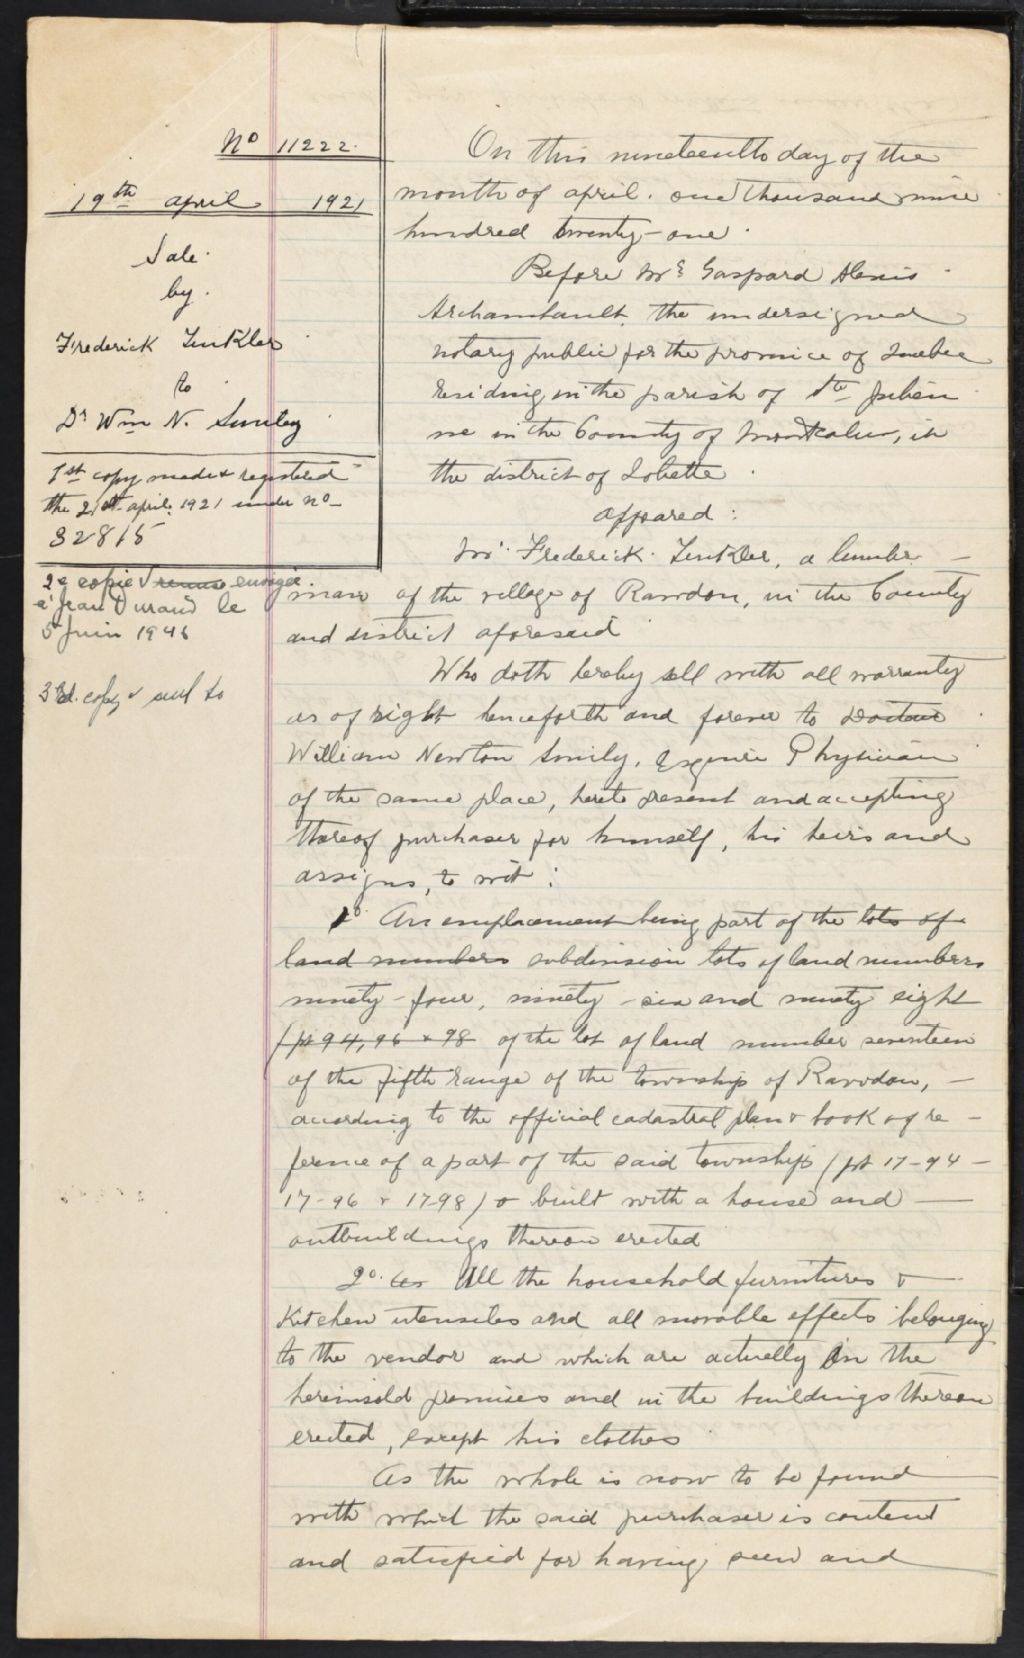 No 11222.
19th april 1921
Sale.
by.
Frederick Tinkler
to
Dr Wm N. Smiley
1st copy made & registered
the 21st april 1921 under no
32815
2e copie envoyée
à Jean Durand le
5 Juin 1946
3rd. copy sent to
On this nineteenth day of the
month of april. one thousand nine
hundred twenty-one.
Before Mr Gaspard Alexis
Archambault, the undersigned
notary public for the province of Quebec
residing in the parish of Ste Julien
ne in the County of Montcalm, in
the district of Joliette
appeared:
Mr. Frederick Tinkler, a lumber —
man of the village of Rawdon, in the County
and district aforesaid
Who doth hereby sell with all warranty
as of right henceforth and forever to Doctor
William Newton Smily, Esquire Physician
of the same place, hereto present and accepting
thereof purchaser for himself, his heirs and
assigns, to wit:
1o. An emplacement being part of the lots of
land numbers subdivision lots of land numbers
ninety-four, ninety-six and ninety eight
(pt 94, 96 & 98 of the lot of land number seventeen
of the fifth range of the township of Rawdon, —
according to the official cadastral plan & book of re -
ference of a part of the said township (pt 17-94 -
17-96 & 17-98) & built with a house and —
outbuildings thereon erected
2o. All the household furnitures &
Kitchen utensiles and all movable effects belonging
to the vendor and which are actually in the
hereinsold premises and in the buildings thereon
erected, except his clothes
As the whole is now to be found
with which the said purchaser is content
and satisfied for having seen and